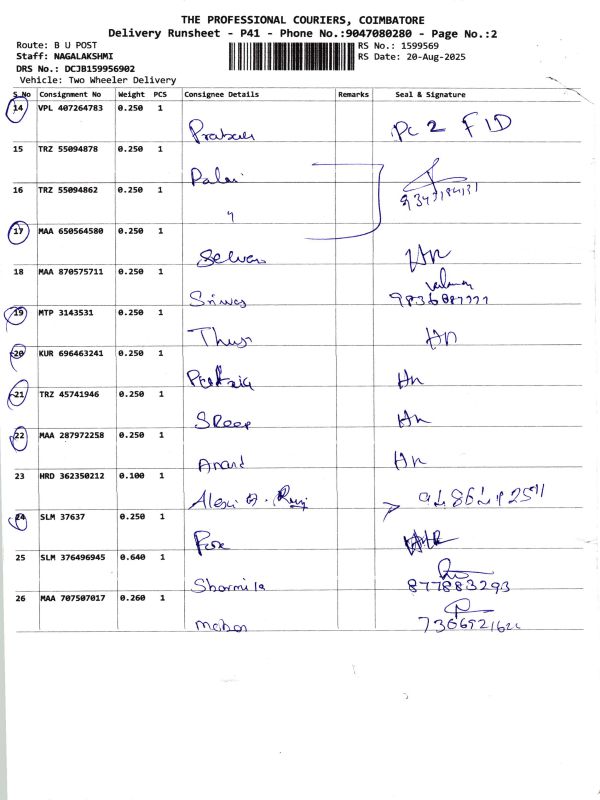 THE PROFESSIONAL COURIERS, COIMBATORE
Delivery Runsheet - P41 - Phone No.:9047080280 - Page No.:2
Route: B U POST RS No.: 1599569
Staff: NAGALAKSHMI RS Date: 20-Aug-2025
DRS No.: DCJB159956902
Vehicle: Two Wheeler Delivery
S.No Consignment No Weight PCS Consignee Details Remarks Seal & Signature
14 VPL 407264783 0.250 1
Pc 2 FID
15 TRZ 55094878 0.250 1
Palani
16 TRZ 55094862 0.250 1
"
17 MAA 650564580 0.250 1
Selvan Hn
18 MAA 870575711 0.250 1
Srinivas
19 MTP 3143531 0.250 1
Hn
20 KUR 696463241 0.250 1
Hn
21 TRZ 45741946 0.250 1
SReep Hn
22 MAA 287972258 0.250 1
Anand Hn
23 HRD 362350212 0.100 1
24 SLM 37637 0.250 1
25 SLM 376496945 0.640 1
Sharmila 877883293
26 MAA 707507017 0.260 1